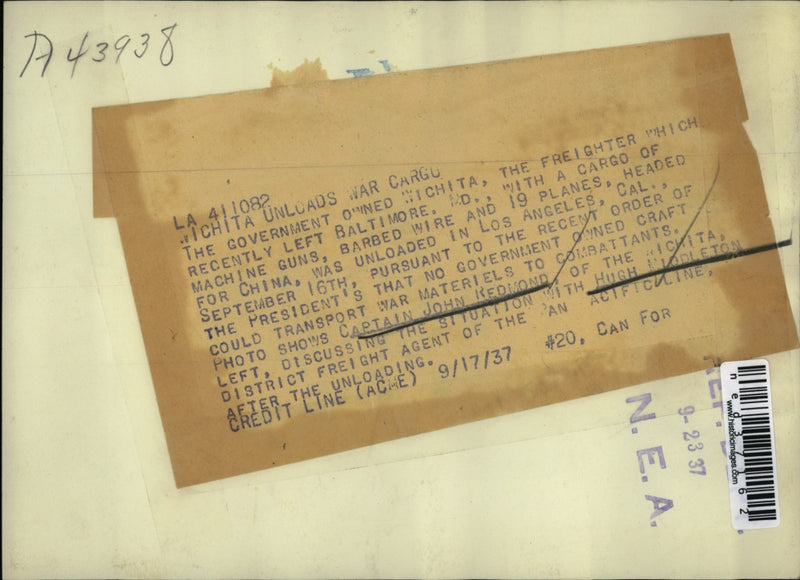 A43938
LA 411082
WICHITA UNLOADS WAR CARGO
THE GOVERNMENT OWNED WICHITA, THE FREIGHTER WHICH
RECENTLY LEFT BALTIMORE, MD., WITH A CARGO OF
MACHINE GUNS, BARBED WIRE AND 19 PLANES, HEADED
FOR CHINA, WAS UNLOADED IN LOS ANGELES, CAL.,
SEPTEMBER 16TH, PURSUANT TO THE RECENT ORDER OF
THE PRESIDENT'S THAT NO GOVERNMENT OWNED CRAFT
COULD TRANSPORT WAR MATERIELS TO COMBATTANTS.
PHOTO SHOWS CAPTAIN JOHN REDMOND, OF THE WICHITA,
LEFT, DISCUSSING THE SITUATION WITH HUGH MIDDLETON
DISTRICT FREIGHT AGENT OF THE PAN ACIFIC LINE,
AFTER THE UNLOADING.
CREDIT LINE (ACME) 9/17/37 #20, CAN FOR
REF.
9-23 37
N.E.A.
www.historicimages.com